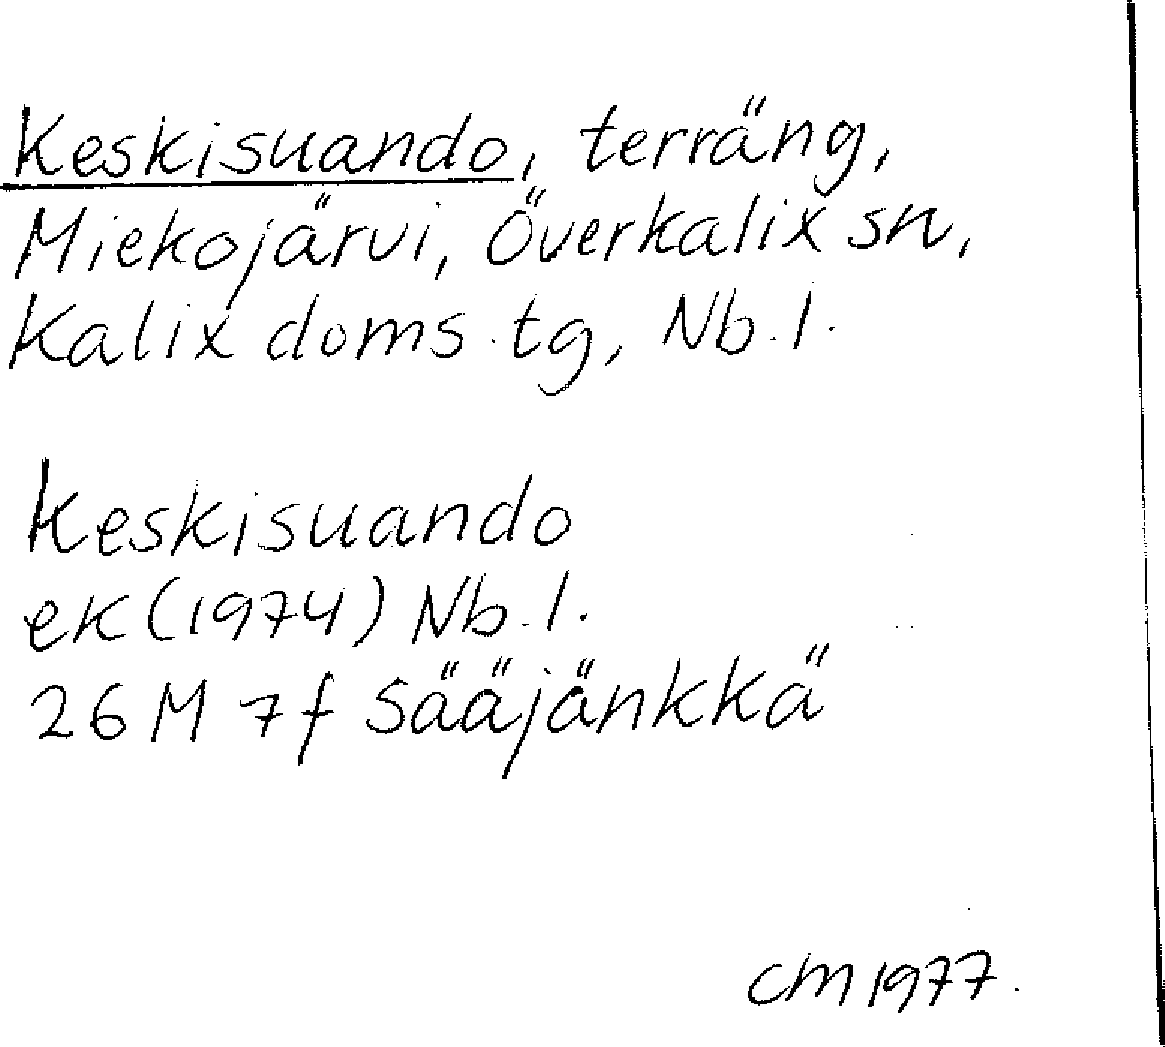 Keskisuando, terräng,
Miekojärvi, Överkalix sn,
Kalix doms.tg, Nb.l.
Keskisuando
ek (1974) Nb.l.
26 M 7f Sääjänkkä
CM 1977.